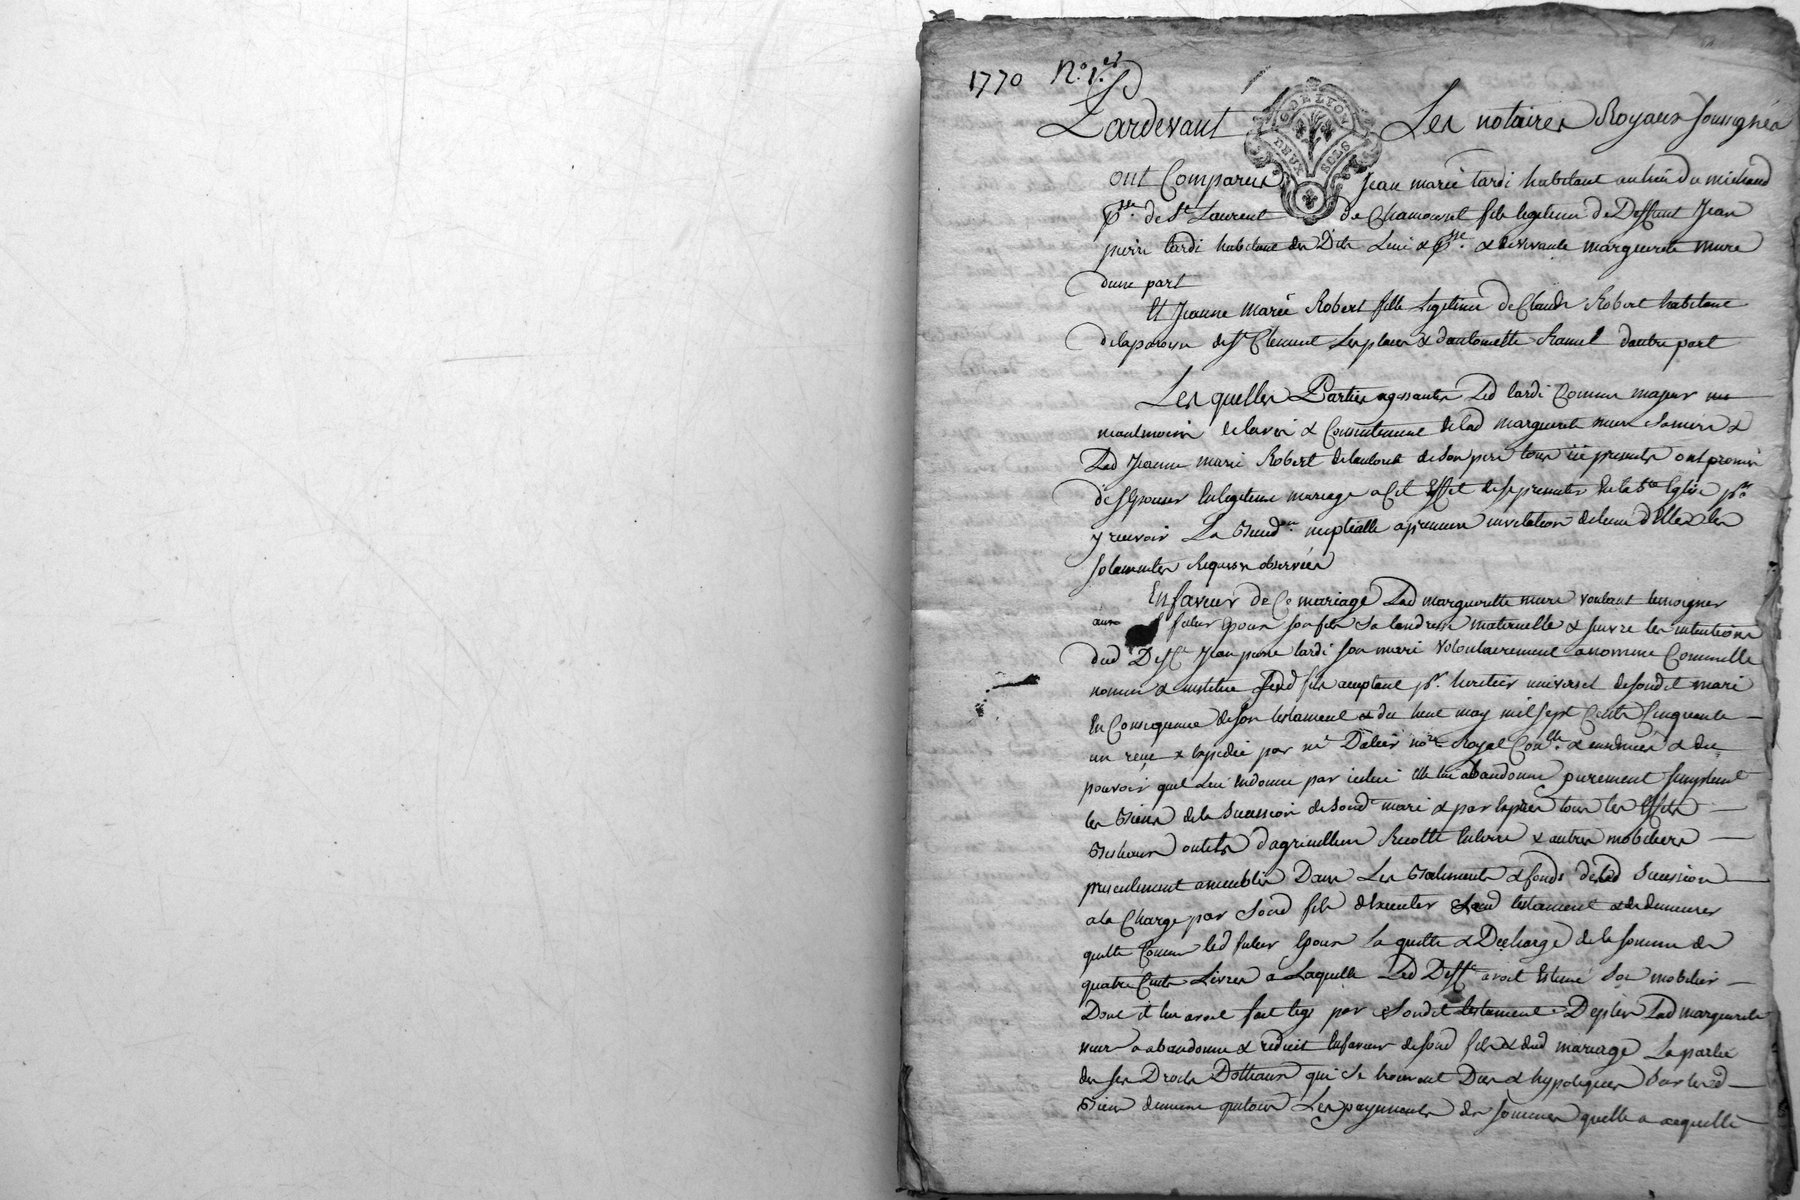 1770 N.° 1.er
Pardevant Les notaires Royaux soussignés
DE LYON
DEUX SOLS
ont Comparus Jean marie tardi habitant au lieu du michaud
p.sse de S.t Laurent de Chamousset fils legitime de Deffunt Jean
pierre tardi habitant des Dits Lieu & p.sse & de vivante marguerite mure
dune part
Et Jeanne marie Robert fille Legitime de Claude Robert habitant
de la paroisse de S.t Clement Les places & dantoinette Ramel dautre part
Les quelles Parties agissantes Led tardi Comme majeur
neantmoins de lavis & Consentement de lad marguerite mure sa mere &
Lad Jeanne marie Robert de lautorité de son pere tous ici presents ont promis
de sEpouser En legitime mariage a Cet Effet de se presenter En la S.te Eglise p.r
y recevoir La Bened.on nuptialle a premiere invitation de lun dElles Les
solemnités Requises observées
En faveur de Ce mariage Lad marguerite mure voulant temoigner
futur Epoux son fils sa tendresse maternelle & suivre les intentions
dud Deff.t Jean pierre tardi son mari volontairement a nommé Comme Elle
nomme & institue led fils acceptant p.r heritier universel de son dit mari
En Consequence de son testament du huit may mil sept Cents Cinquante
un recu & Expedié par m.e no.re Royal & du
pouvoir quil Lui En donne par icelui Elle lui abandonne purement
les Biens de la Succession de son d. mari & par Exprès tous les Effets
Bestiaux outils dagriculture Recolte & autres mobiliers
presentement Dans Les Batiments & fonds de lad Succession
a la Charge par son d fils dExecuter led testament & de demeurer
quitte Comme led futur Epoux La quitte & Decharge de la somme de
quatre Cents Livres a Laquelle Led Deff.t avoit Estimé son mobilier
Dont il lui avoit fait legs par son dit testament Deplus Lad marguerite
mure a abandonné & reduit En faveur de son d fils & dud mariage La partie
de ses Droits Dottaux qui se trouvent Dus & hypotequés sur lesd
Biens Les payements des sommes quelle a acquitté